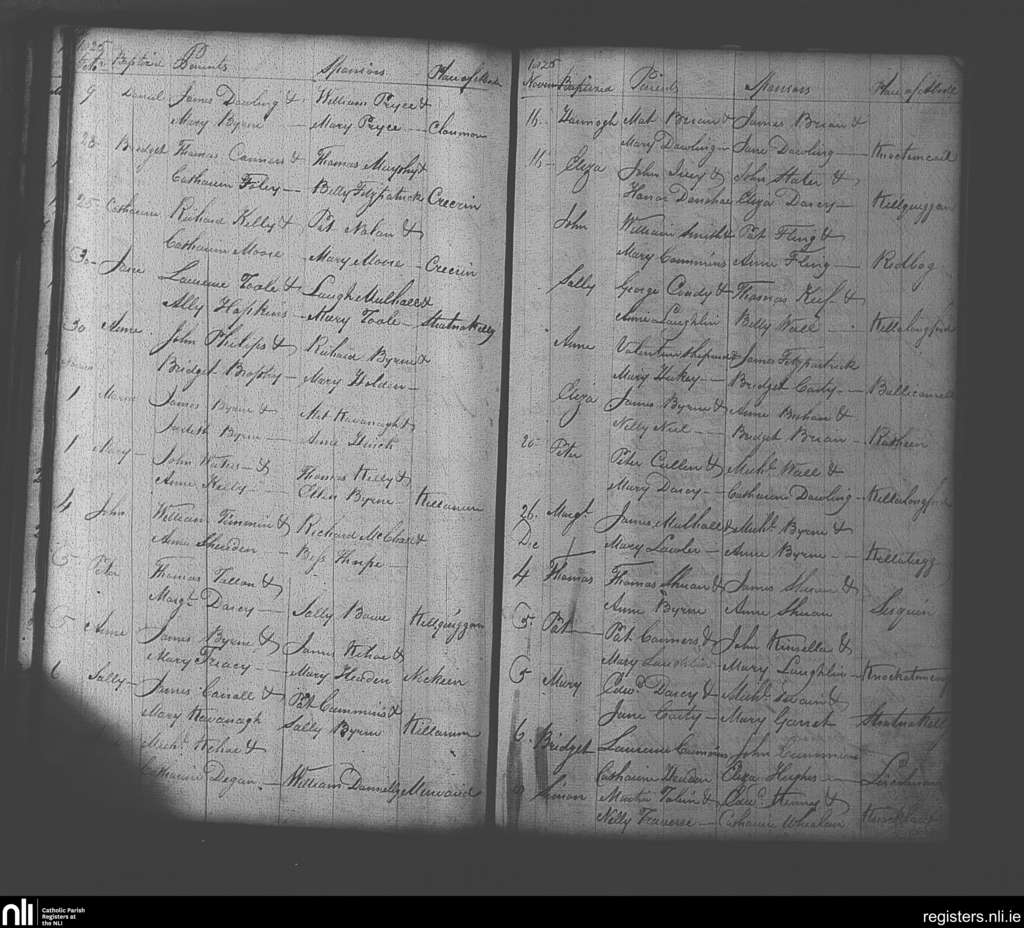 1825
Octr Baptized Parents Sponsors Place of Abode
9 Daniel James Dowling & William Pryce &
Mary Byrne Mary Pryce Clonmore
23 Bridget Thomas Connors & Thomas Murphy &
Catharin Foley Billy Fitzpatrick Creecrin
25 Catharine Richard Kelly & Pat Nolan &
Catharine Moore Mary Moore Creecrin
30 Jane Laurence Toole & Laugh Mulhall &
Ally Hopkins Mary Toole Stratnakelly
30 Anne John Philips & Richard Byrne &
Bridget Brophy Mary Holden
1 Maria James Byrne & Mat Kavanaght
Judith Byrne Anne
1 Mary John & Thomas Kelly &
Anne Kelly Ellen Byrne Killanure
4 John William & Richard McCleat
Anne Sheeden Bess Thorpe
5 Peter Thomas Fallon &
Margt Darcey Sally Bawe Killquiggan
5 Anne James Byrne & James Kehoe &
Mary Treacy Mary Headen Nickeen
6 Sally James Carroll & Pat Cummins &
Mary Kavanagh Sally Byrne Killanure
Michl Kehoe &
Catharine Degan William Donnelly
1825
Novem Baptized Parents Sponsors Place of Abode
16 Hannogh Mat Brian & James Brian &
Mary Dowling Jane Dowling
16 Eliza John Ivey & John Slater &
Honor Donohoe Eliza Darcy Killquiggan
John William Smith & Pat Fling &
Mary Commins Anne Fling Redbog
Sally George Condy & Thomas Keef &
Anne Laughlin Betty Wall Killalongford
Anne Valentine James Fitzpartrick
Mary Hickey Bridget Carty
Eliza James Byrne & Anne &
Nelly Neil Bridget Brian Ratheen
20 Peter Peter Cullen & Michl Wall &
Mary Darcy Catharine Dowling Killalongford
26 Margt James Mulhall & Michl Byrne &
Dec Mary Lawler Anne Byrne
4 Thomas Thomas Shean & James Shean &
Anne Byrne Anne Shean
5 Pat Pat Connors & John Kinsella &
Mary Laughlin Mary Laughlin
5 Mary Edwd Darcy & Michl &
Jane Carty Mary Garret Stratnakelly
6 Bridget Laurence Cummins John Cummins
Catharin Headen Eliza Hughes
Simon Martin Tobin & Edwd &
Nelly Traverse Catharine Whealan
nli Catholic Parish
Registers at
the NLI
registers.nli.ie